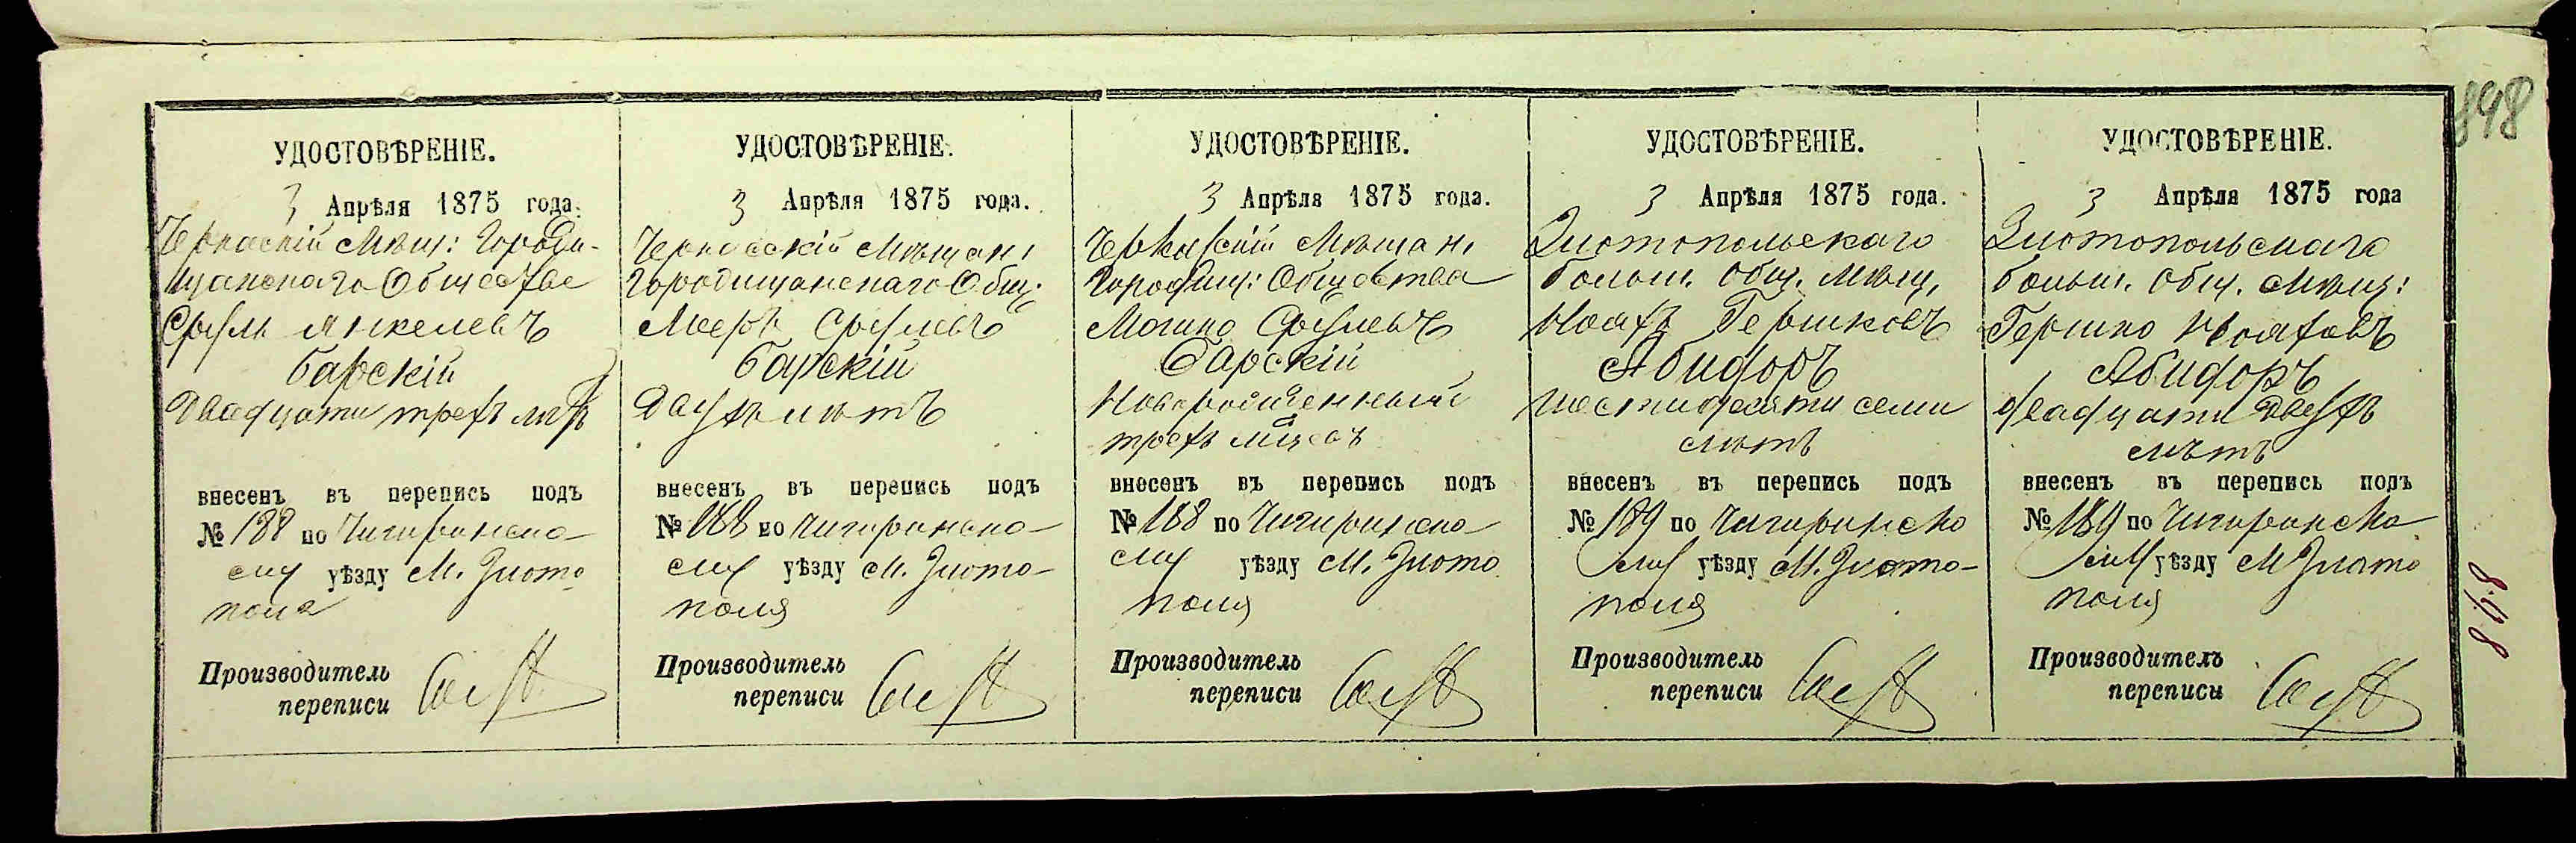 898
УДОСТОВѢРЕНІЕ.
3 Апрѣля 1875 года.
Черкаскій Мѣщ: Городи-
щанскаго Общества
Сруль Янкелевъ
Барскій
Двадцати трехъ лѣтъ
внесенъ въ перепись подъ
№ 188 по Чигиринско-
му уѣзду М. Злото
поля
Производитель
переписи
УДОСТОВѢРЕНІЕ.
3 Апрѣля 1875 года.
Черкасскій Мѣщан:
Городищанскаго Общ:
Мееръ Срулевъ
Барскій
Двухъ лѣтъ
внесенъ въ перепись подъ
№ 188 по Чигиринско-
му уѣзду М. Злото-
поля
Производитель
переписи
УДОСТОВѢРЕНІЕ.
3 Апрѣля 1875 года.
Черкаскій Мѣщан:
Городищ: Общества
Мошко Срулевъ
Барскій
Новорожденный
трехъ мѣсяц
внесенъ въ перепись подъ
№ 188 по Чигиринско
му уѣзду М. Злото
поля
Производитель
переписи
УДОСТОВѢРЕНІЕ.
3 Апрѣля 1875 года.
Злотопольскаго
больш. общ. мѣщ.
Ноахъ Гершковъ
Абидоръ
шестидесяти семи
лѣтъ
внесенъ въ перепись подъ
№ 189 по Чигиринско
му уѣзду М. Злото-
поля
Производитель
переписи
УДОСТОВѢРЕНІЕ.
3 Апрѣля 1875 года
Злотопольскаго
больш. общ. мѣщ:
Гершко Ноаховъ
Абидоръ
двадцати двухъ
лѣтъ
внесенъ въ перепись подъ
№ 189 по Чигиринско
му уѣзду М Злото
поля
Производитель
переписи
898